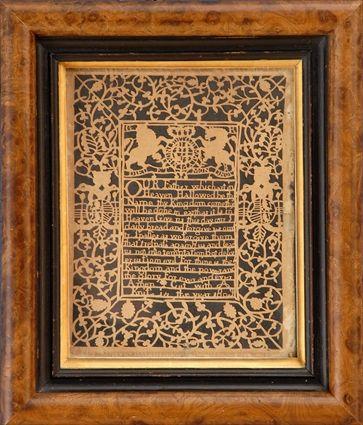 OUR Father which art in
Heaven Hallowed be thy
Name thy Kingdom come thy
will be done in earth as it is in
Heaven Give us this day our
daily bread and forgive us our
as we forgive them
that trespass against us and lead
us not into temptation but deliver
us from evil for thine is the
Kingdom and the power and
the glory for ever and ever
Amen
in the year